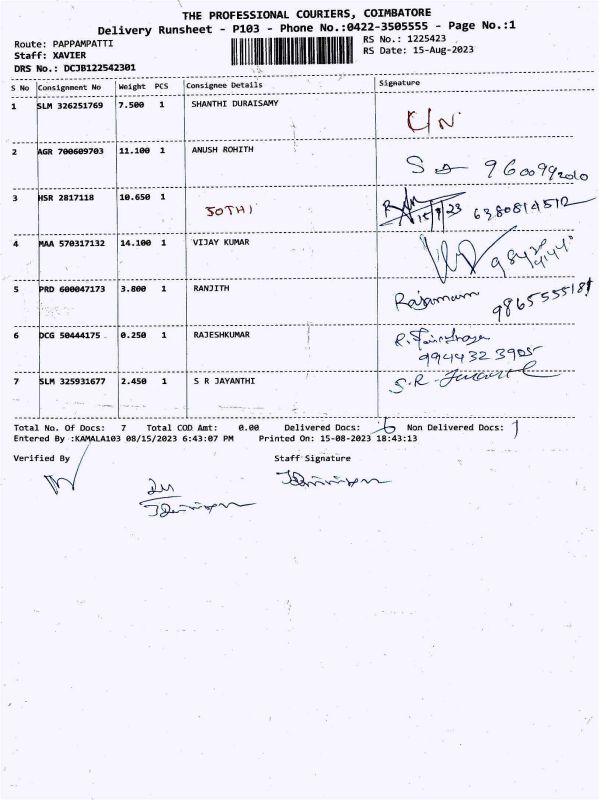 THE PROFESSIONAL COURIERS, COIMBATORE
Delivery Runsheet - P103 - Phone No.:0422-3505555 - Page No.:1
Route: PAPPAMPATTI RS No.: 1225423
Staff: XAVIER RS Date: 15-Aug-2023
DRS No.: DCJB122542301
S No Consignment No Weight PCS Consignee Details Signature
1 SLM 326251769 7.500 1 SHANTHI DURAISAMY
2 AGR 700609703 11.100 1 ANUSH ROHITH
3 HSR 2817118 10.650 1 JOTHI 6380814512
4 MAA 570317132 14.100 1 VIJAY KUMAR
5 PRD 600047173 3.800 1 RANJITH
6 DCG 50444175 0.250 1 RAJESHKUMAR
9944323905
7 SLM 325931677 2.450 1 S R JAYANTHI S.R.
Total No. Of Docs: 7 Total COD Amt: 0.00 Delivered Docs: 6 Non Delivered Docs: 1
Entered By :KAMALA103 08/15/2023 6:43:07 PM Printed On: 15-08-2023 18:43:13
Verified By Staff Signature